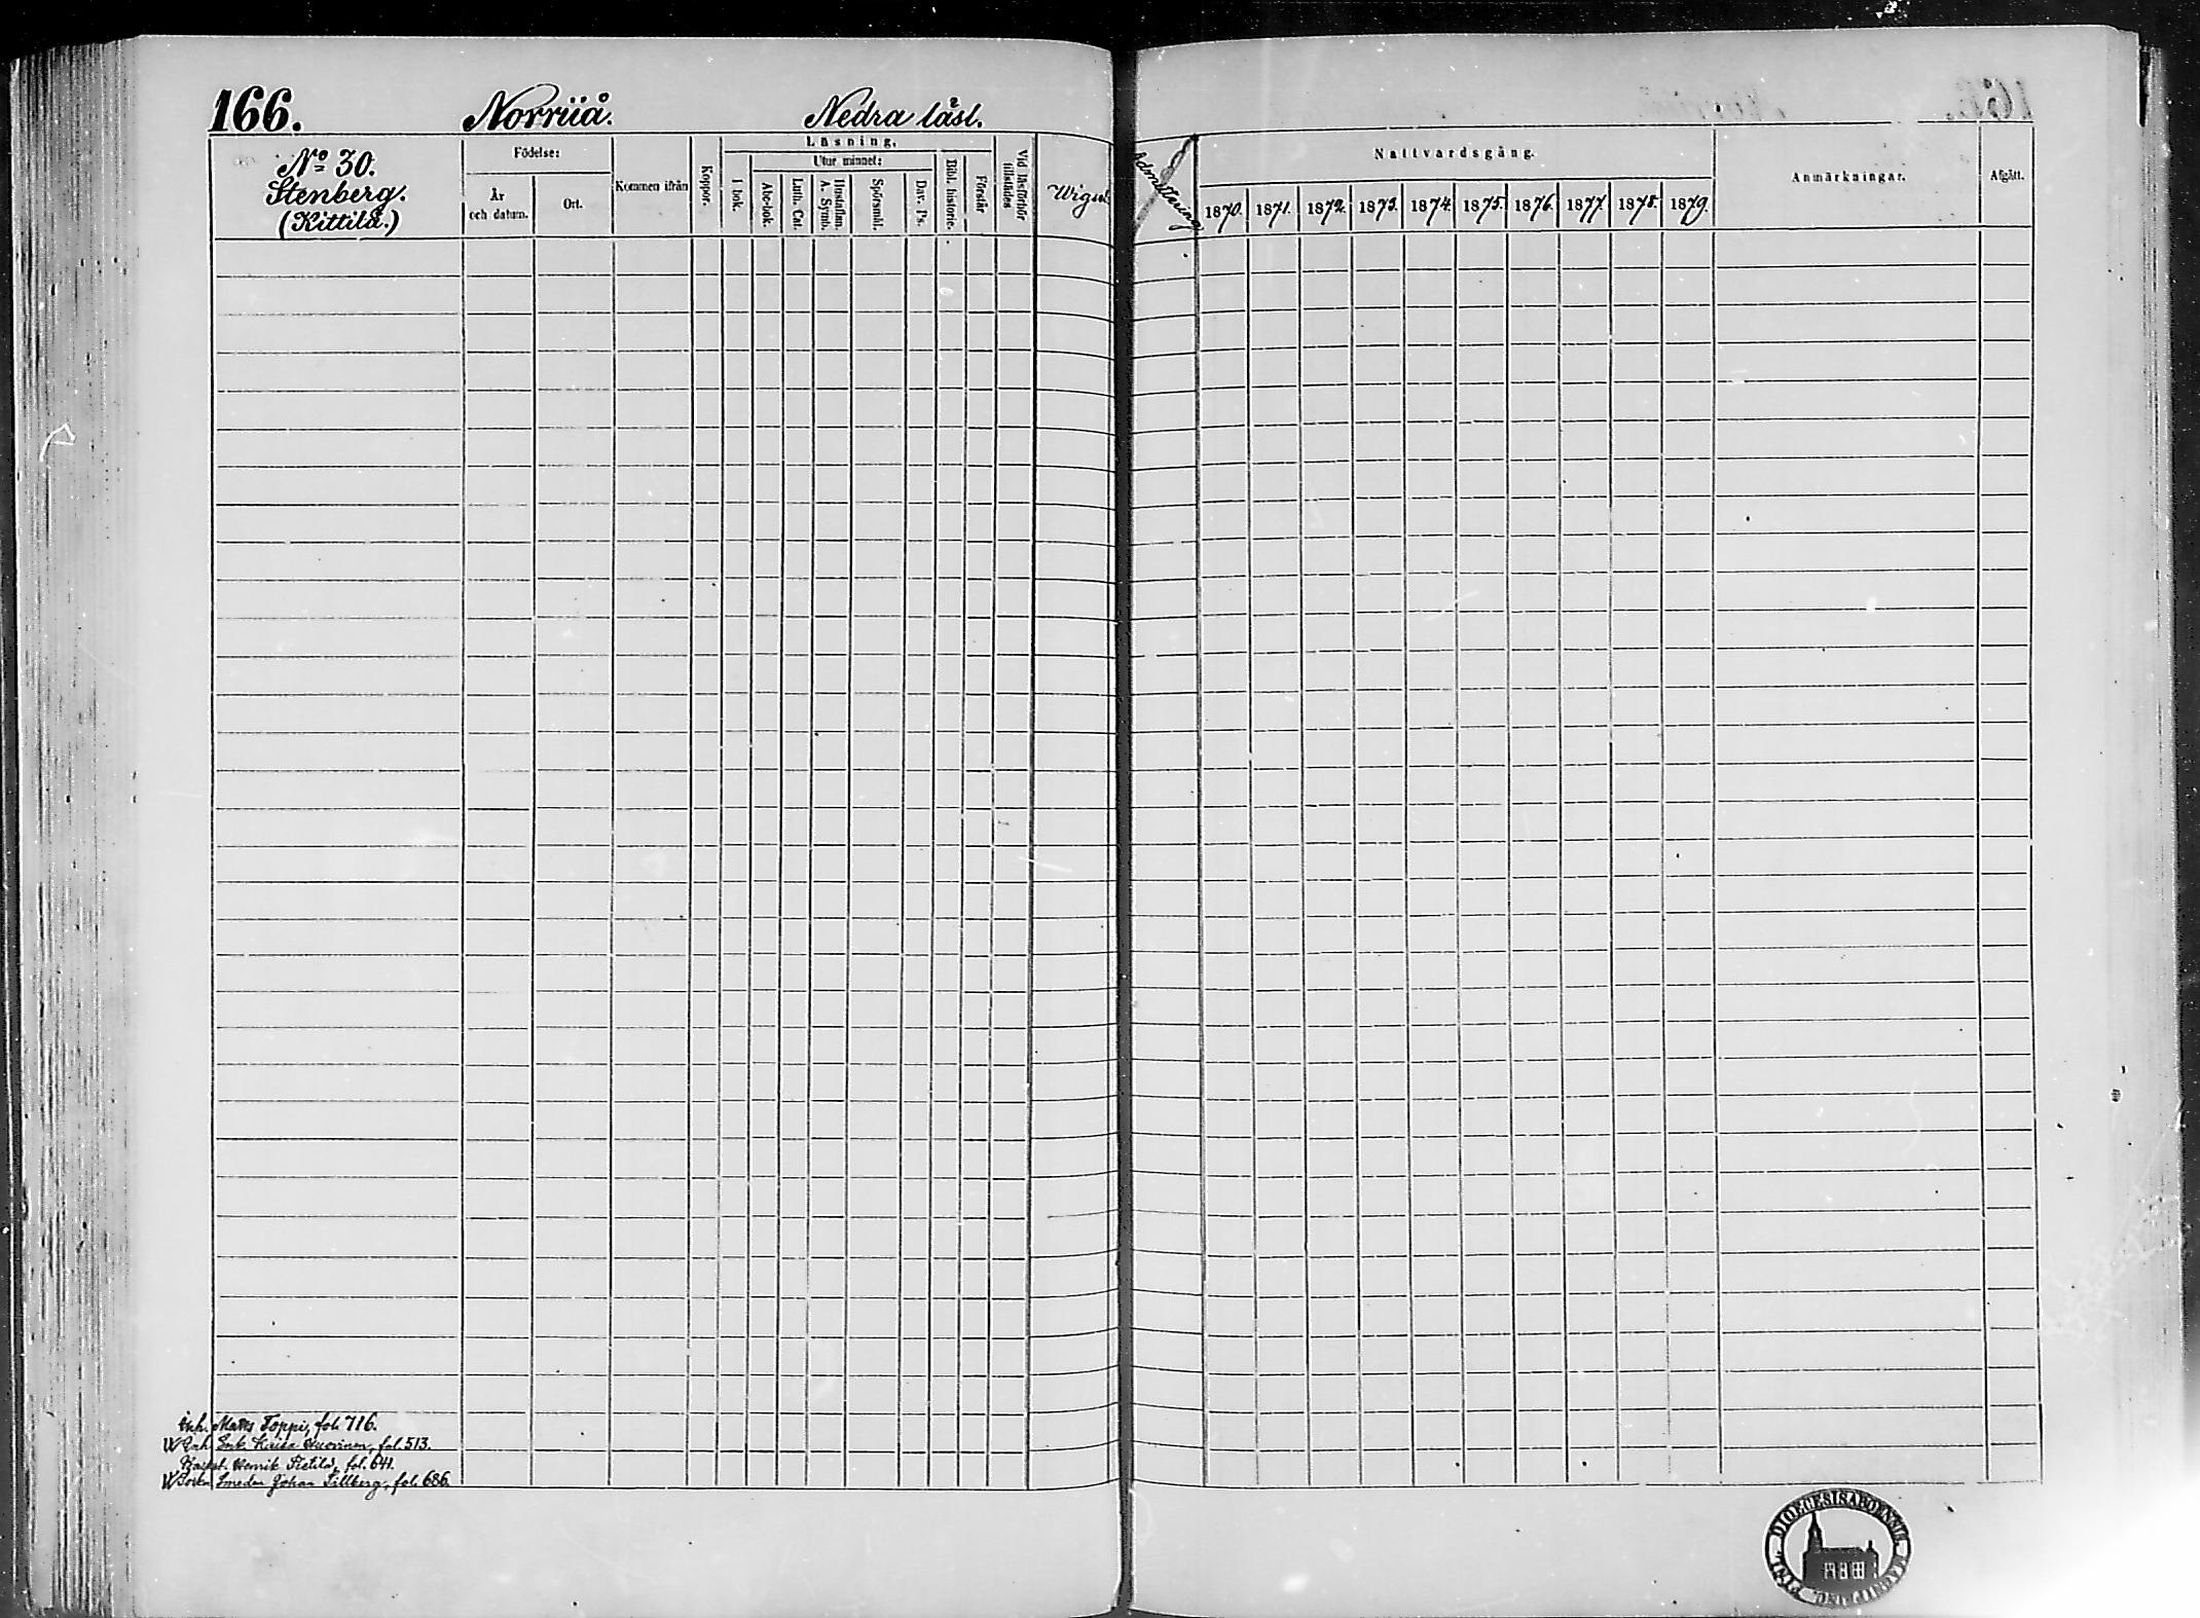 166. Norriiå. Nedra låsl.
No 30.
Stenberg.
(Kittilä.)
Födelse:
År
och datum.
Ort.
Kommen ifrån
Koppor.
Läsning.
I bok.
Utur minnet:
Abc-bok.
Luth. Cat.
Hustaflan.
A. Symb.
Spörsmål.
Dav. Ps.
Bibl. historie.
Förstår
Vid läsförhör
tillstädes
Wigsel
Admittering
Nattvardsgång.
1870. 1871. 1872. 1873. 1874. 1875. 1876. 1877. 1878. 1879.
Anmärkningar.
Afgått.
Inh. Matts Toppi, fol. 716.
Enk. Kaisa fol. 513.
Henrik fol. 641.
Smeden Johan Tillberg, fol. 686.
DIOECESIS ABOENNIS